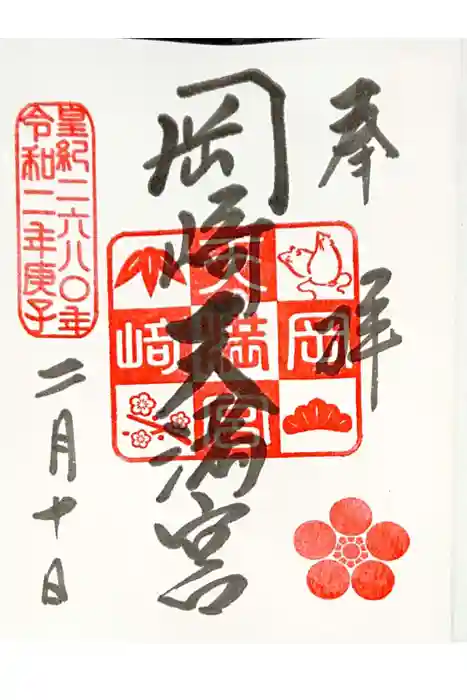 奉拝
岡崎天満宮
岡 天満宮 崎
皇紀二六八〇年
令和二年庚子
二月十日